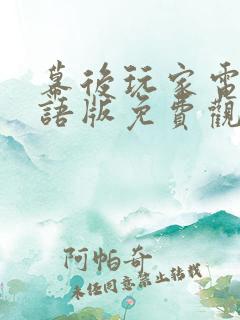 幕後玩家電
語版免費觀
阿帕奇
未經同意禁止轉載